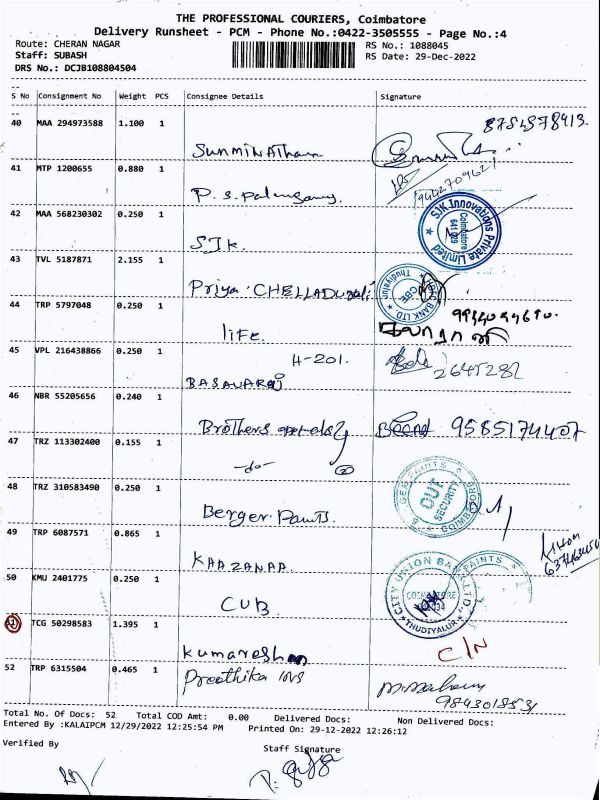 THE PROFESSIONAL COURIERS, Coimbatore
Delivery Runsheet - PCM - Phone No.:0422-3505555 - Page No.:4
Route: CHERAN NAGAR
RS No.: 1088045
Staff: SUBASH
RS Date: 29-Dec-2022
DRS No.: DCJB108804504
S No Consignment No Weight PCS Consignee Details Signature
40 MAA 294973588 1.100 1
41 MTP 1200655 0.880 1
P. S. Palanisamy
42 MAA 568230302 0.250 1
SJK Innovations Private Limited
Coimbatore
641 029
SJK.
43 TVL 5187871 2.155 1
Priya CHELLADURAI
BANK LTD
Thudiyalur
CBE
44 TRP 5797048 0.250 1
LIFE.
45 VPL 216438866 0.250 1
H-201.
BASAVARAJ
46 NBR 55205656 0.240 1
Brothers
9585174407
47 TRZ 113302400 0.155 1
-do-
48 TRZ 310583490 0.250 1
OUT
SECURITY
Berger Paints.
49 TRP 6087571 0.865 1
KAAZANAA
50 KMU 2401775 0.250 1
CITY UNION BANK LTD.
COIMBATORE
THUDIYALUR
PAINTS
CUB
51 TCG 50298583 1.395 1
C/N
kumaresh
52 TRP 6315504 0.465 1
Preethika
Total No. Of Docs: 52 Total COD Amt: 0.00 Delivered Docs: Non Delivered Docs:
Entered By :KALAIPCM 12/29/2022 12:25:54 PM Printed On: 29-12-2022 12:26:12
Verified By
Staff Signature